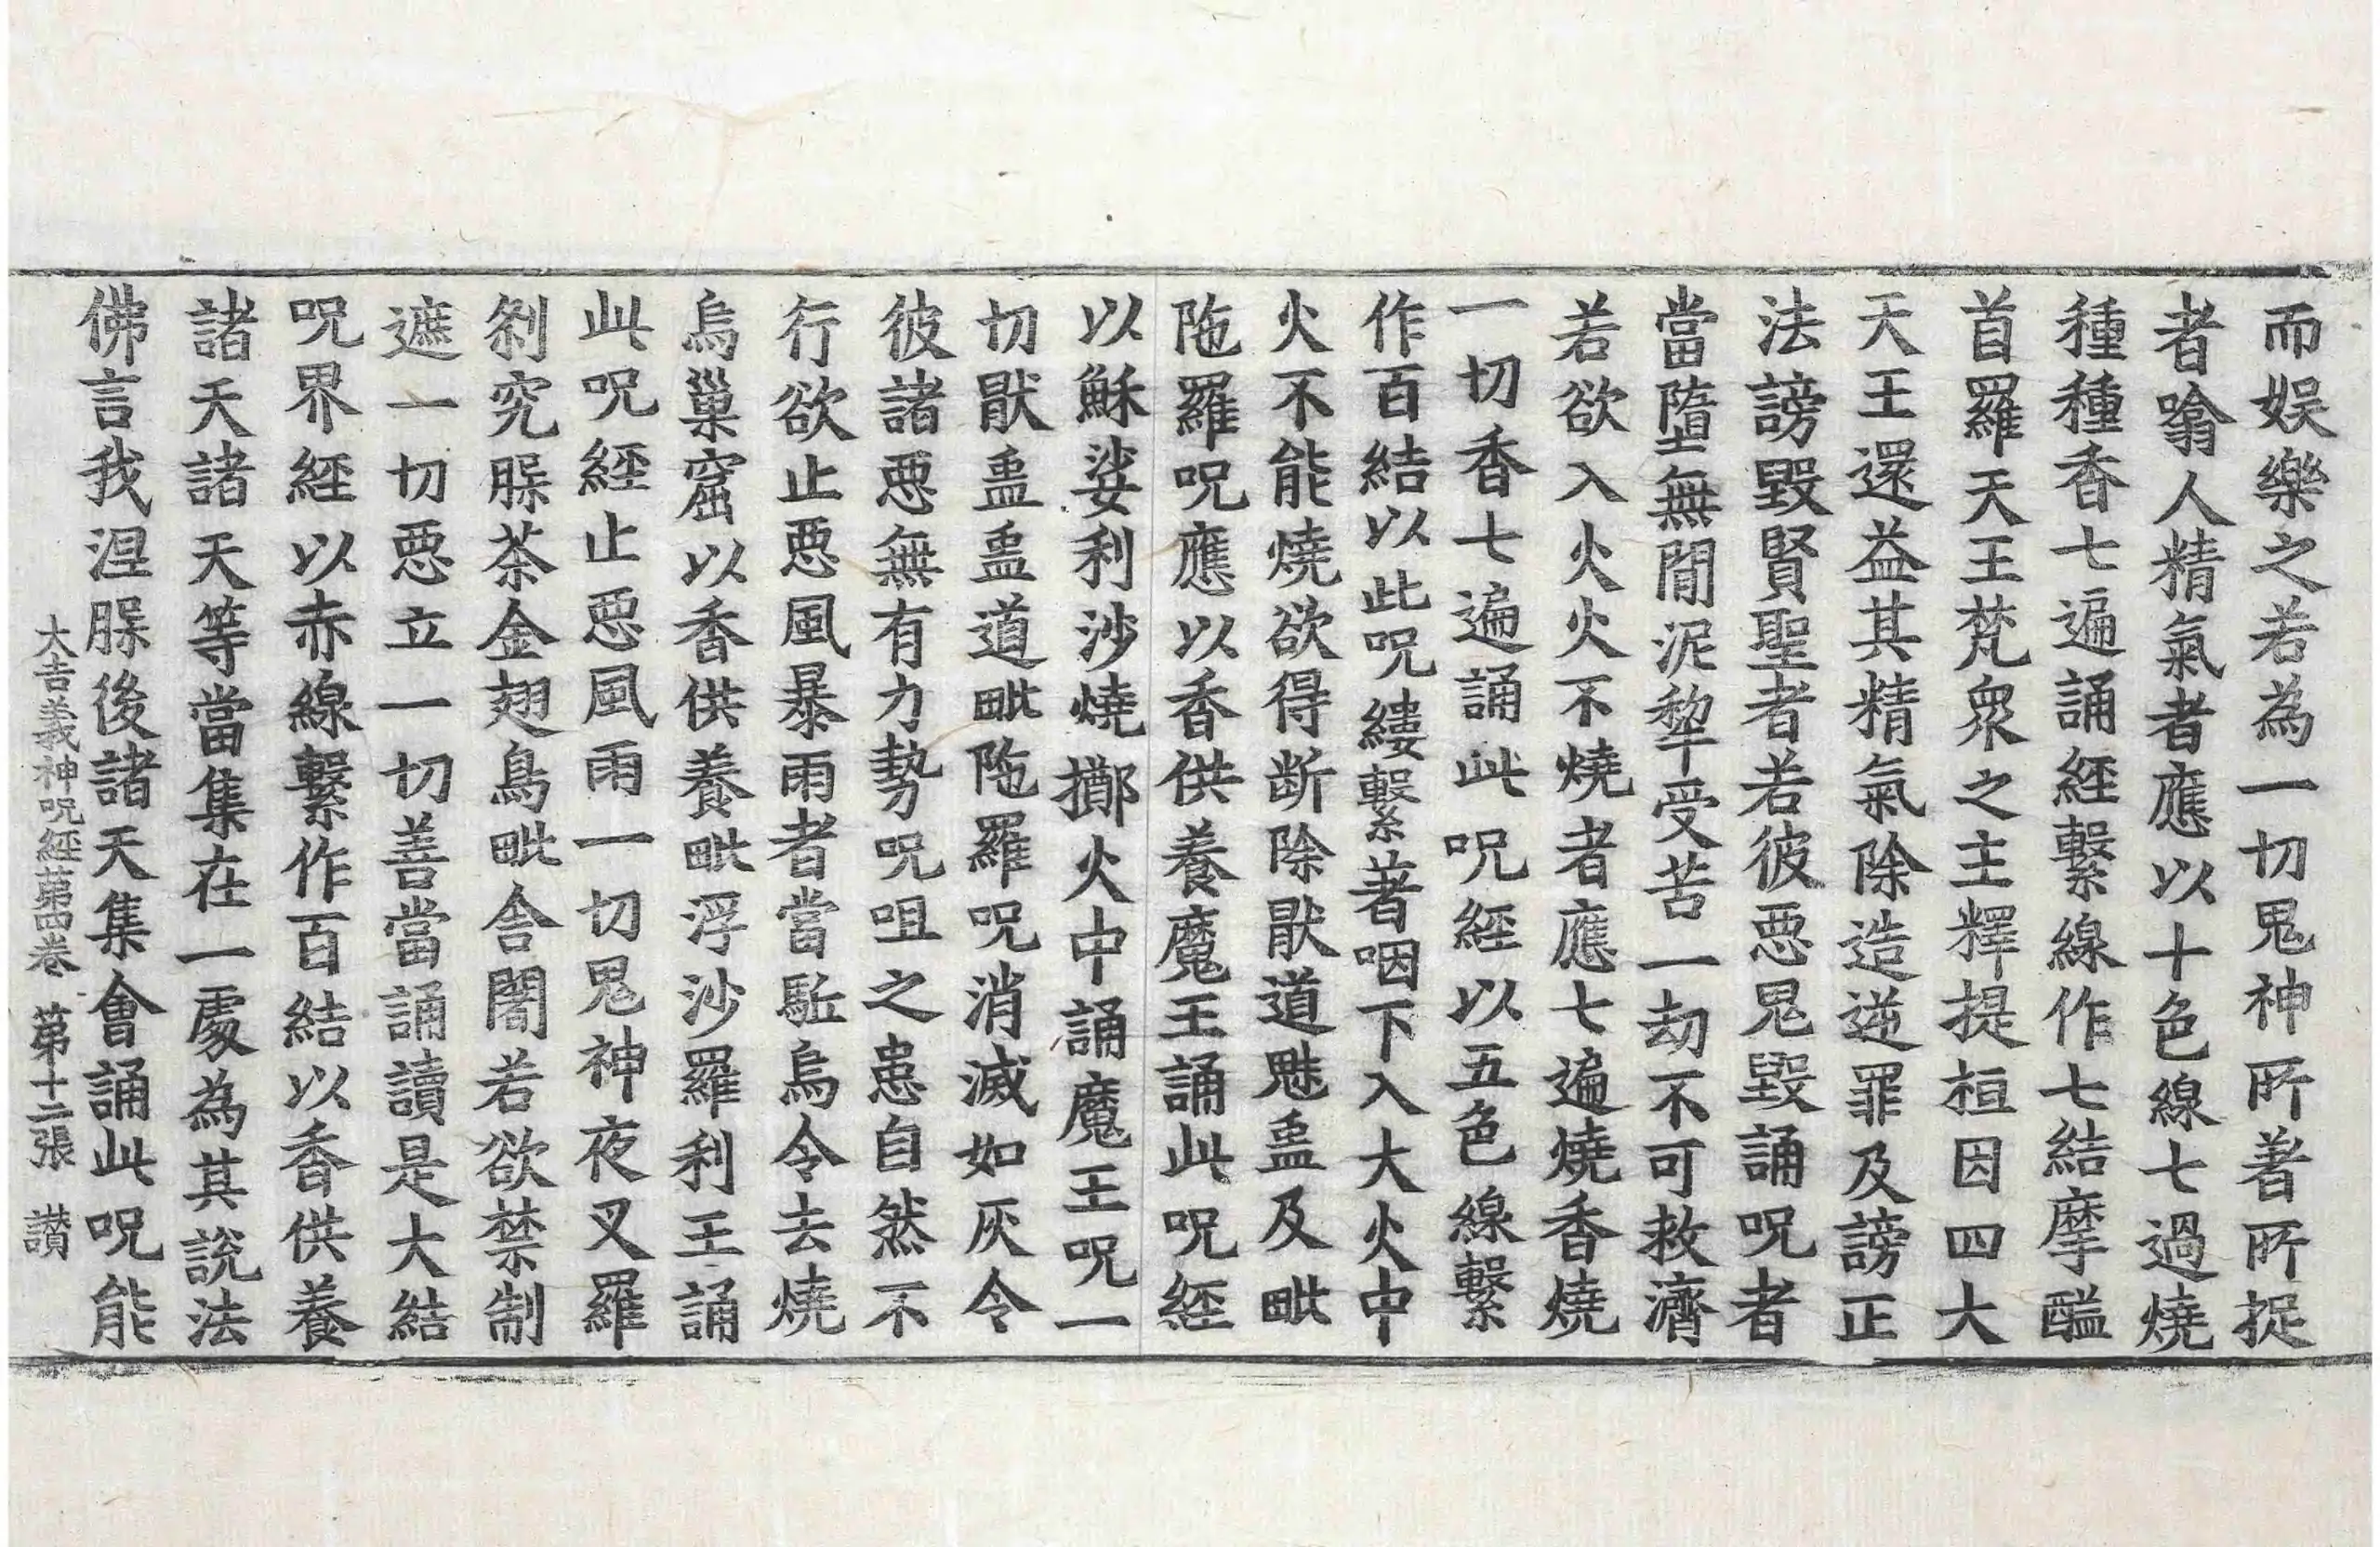 而娛樂之若為一切鬼神所著所捉
者噏人精氣者應以十色線七過燒
種種香七遍誦經繫線作七結摩醯
首羅天王梵衆之主釋提桓因四大
天王還益其精氣除造逆罪及謗正
法謗毀賢聖者若彼惡鬼毀誦呪者
當墮無閒泥犂受苦一劫不可救濟
若欲入火火不燒者應七遍燒香燒
一切香七遍誦此呪經以五色線繫
作百結以此呪縷繫著咽下入大火中
火不能燒欲得斷除猒道魃蛊及毗
陁羅呪應以香供養魔王誦此呪經
以穌娑利沙燒擲火中誦魔王呪一
切猒蛊蛊道毗陁羅呪消滅如灰令
彼諸惡無有力勢呪咀之患自然不
行欲止惡風暴雨者當駈烏令去燒
烏巢窟以香供養毗浮沙羅利王誦
此呪經止惡風雨一切鬼神夜叉羅
剎究脵荼金翅鳥毗舍闍若欲禁制
遮一切惡立一切善當誦讀是大結
呪界經以赤線繫作百結以香供養
諸天諸天等當集在一處為其說法
佛言我涅脵後諸天集會誦此呪能
大吉義神呪經第四卷 第十二張 讃